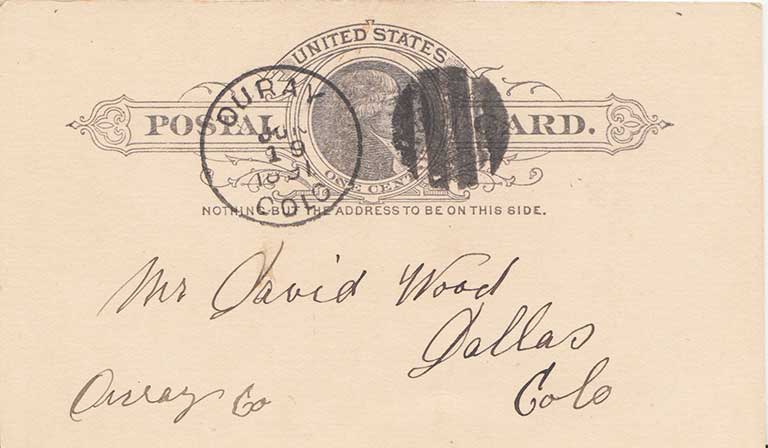 UNITED STATES
POSTAL CARD.
ONE CENT
OURAY
19
COLO
NOTHING BUT THE ADDRESS TO BE ON THIS SIDE.
Mr David Wood
Dallas
Ouray Co
Colo